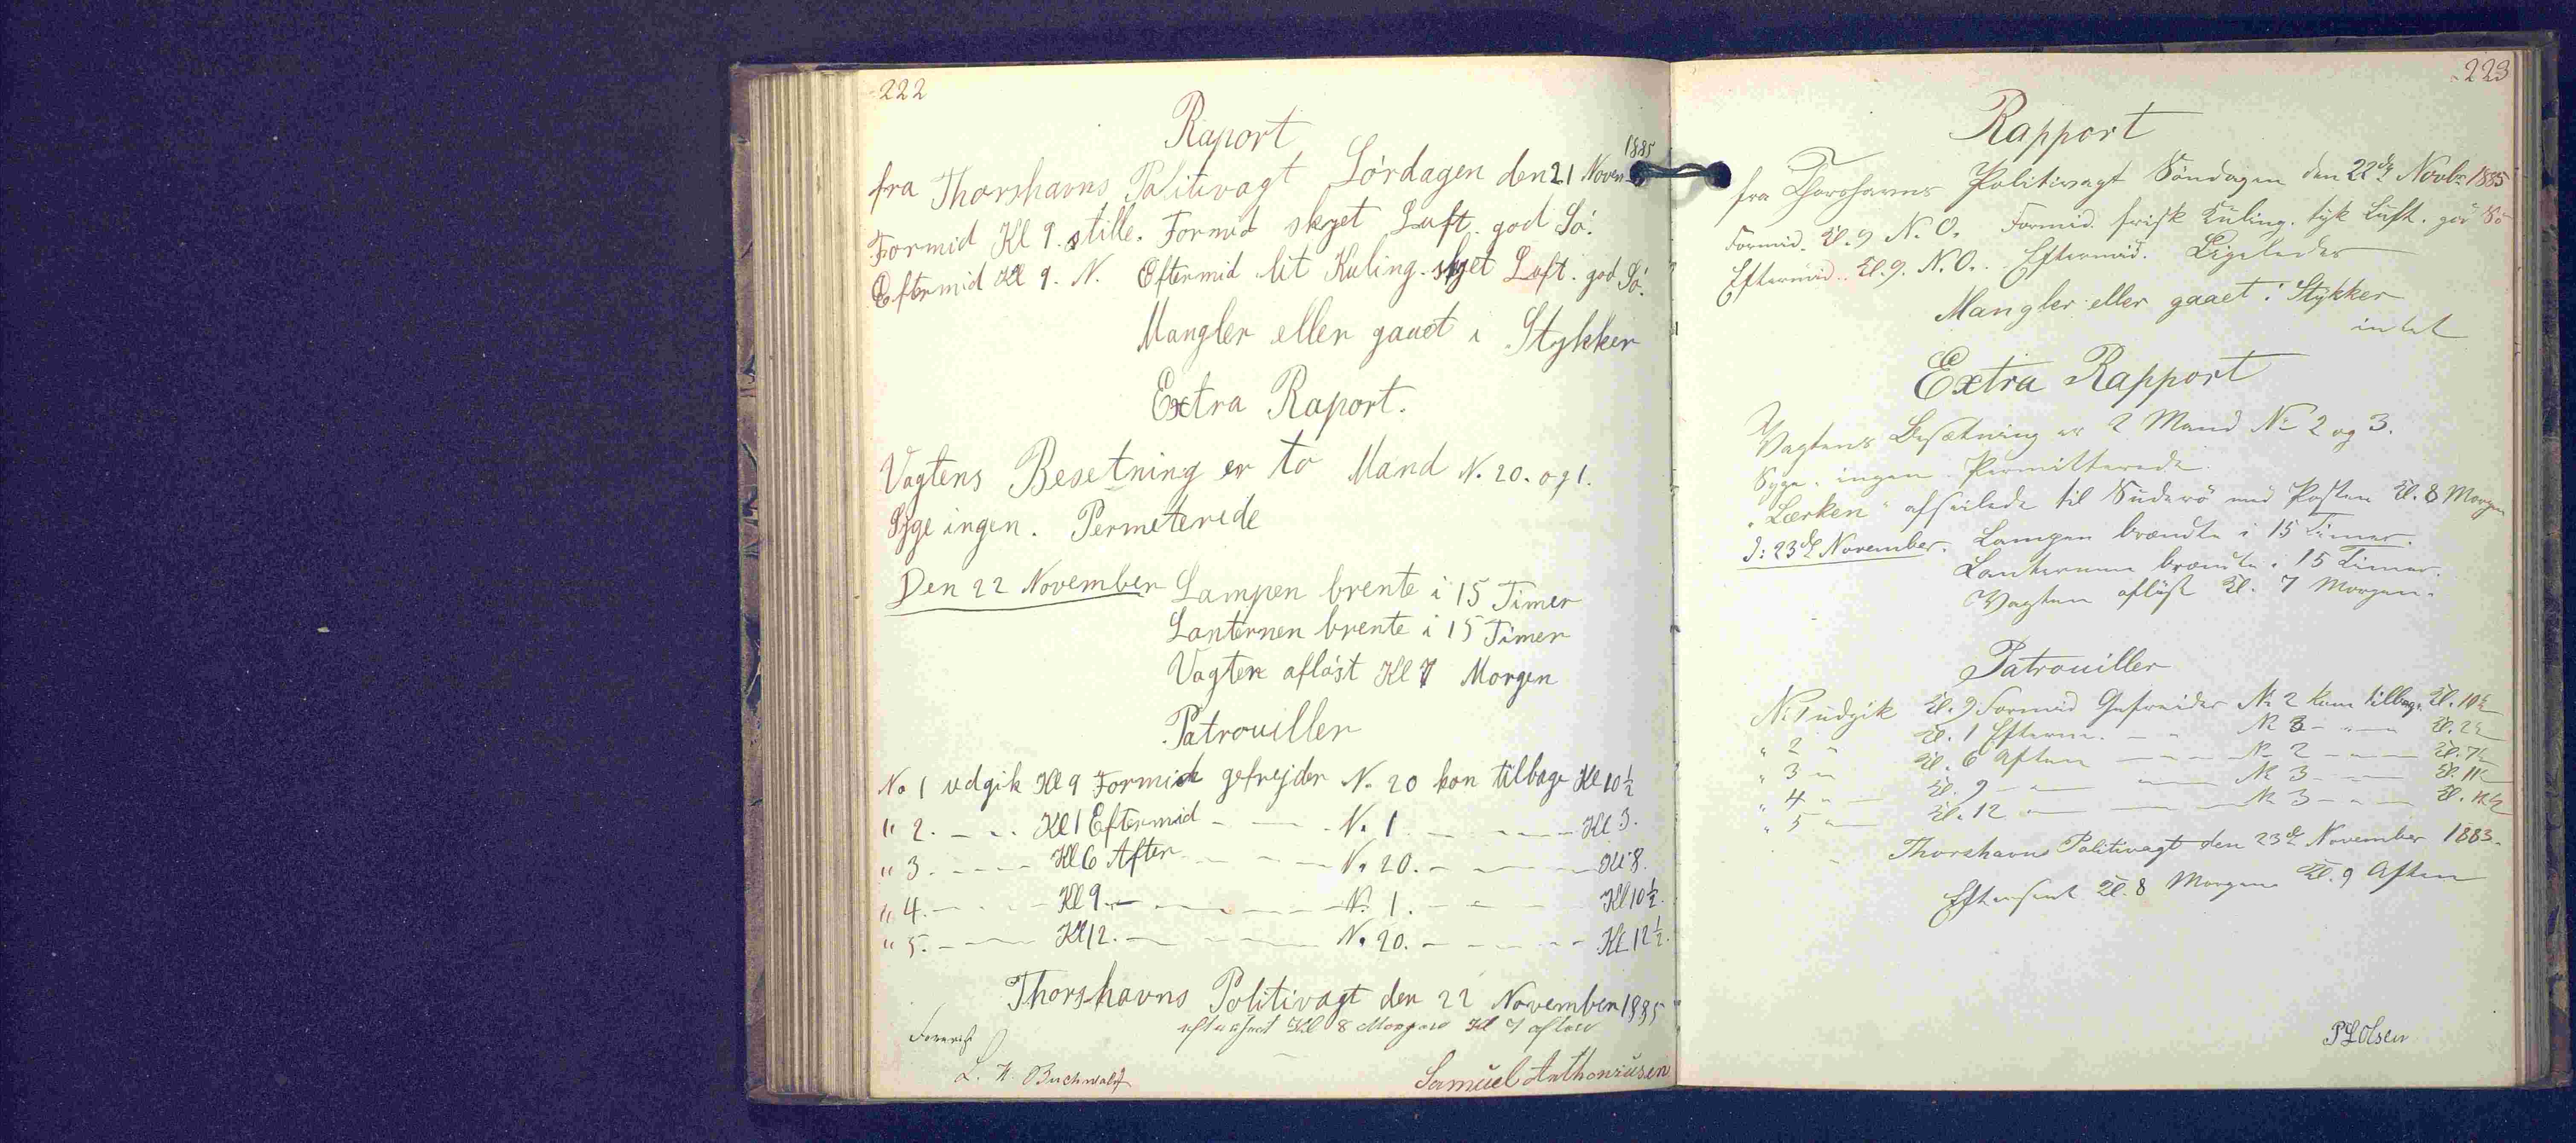 222
Raport
1885
fra Thorshavns Politivagt Lördagen den 21 Novem
Formid Kl 9. stille. Formid skyet Luft. god Sö.
Eftermid Kl 9. N. Eftermid lit Kuling. skyet Luft. god Sö.
Mangler eller gaaet i Stykker
Extra Raport.
Vagtens Besetning er to Mand N. 20. og 1.
Syge ingen. Permeterede
Den 22 November Lampen brente i 15 Timer
Lanternen brente i 15 Timer
Vagten aflöst Kl 7 Morgen
Patrouiller
No 1 udgik Kl 9 Formid gefrejder N. 20 kon tilbage Kl 10½
" 2. - - - Kl 1 Eftermid - - - N. 1. - - - Kl 3.
" 3. - - - Kl 6 Aften - - - N. 20. - - - Kl 8.
" 4. - - - Kl 9. - - - N. 1. - - - Kl 10½.
" 5. - - - Kl 12. - - - N. 20. - - - Kl 12½.
Thorshavns Politivagt den 22 November 1885
efterseet Kl 8 Morgen Kl 9 aften
L. H. Buchwald
Samuel Anthoniusen
223
Rapport
fra Thorshavns Politivagt Söndagen den 22de Novbr 1885
Formid. Kl. 9 N. O. Formid. frisk Kuling. tyk Luft. god Sö
Eftermid. Kl. 9. N. O. Eftermid. Ligeledes
Mangler eller gaaet i Stykker
intet
Extra Rapport
Vagtens Besætning er 2 Mand No 2 og 3.
Syge, ingen Permitterede.
"Lærken" afseilede til Suderö med Posten Kl. 8 Morgen
d: 23de November. Lampen brændte i 15 Timer.
Lanternen brændte i 15 Timer.
Vagten aflöst Kl. 7 Morgen.
Patrouiller
No 1 udgik Kl. 9 Formid Gefreider No 2 kom tilbage Kl. 10½
" 2 " Kl. 1 Efterm. - - No 3 - " - Kl. 2½
" 3 " Kl. 6 Aften - - - No 2 - - - Kl. 7½
" 4 " - Kl. 9 - " - - - No 3 - - - Kl. 11
" 5 " - Kl. 12 " - - - No 3 - " - Kl. 12½
Thorshavns Politivagt den 23de November 1883.
Efterseet Kl. 8 Morgen Kl. 9 Aften
P L Olsen